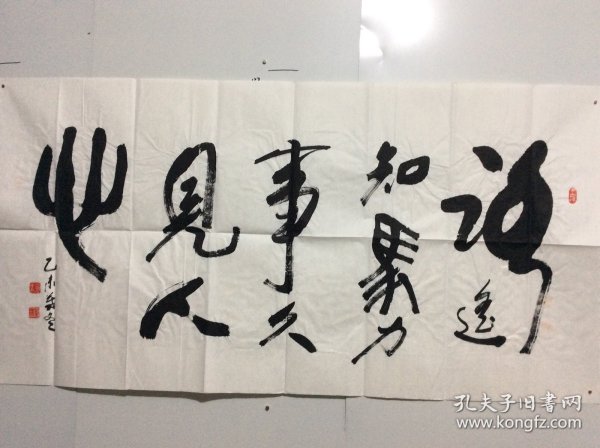 路遙
知馬力
事久
見人
心
乙未
孔夫子旧书网
www.kongfz.com